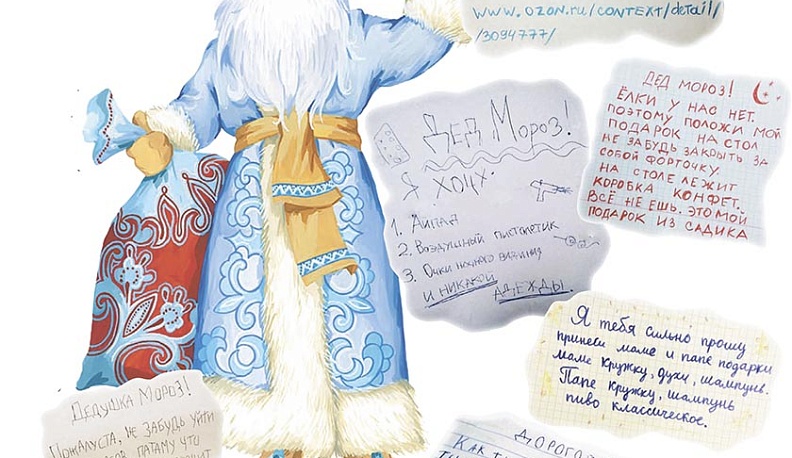 www.ozon.ru/context/detail/
/3094777/
ДЕД МОРОЗ!
ЁЛКИ У НАС НЕТ.
ПОЭТОМУ ПОЛОЖИ МОЙ
ПОДАРОК НА СТОЛ
НЕ ЗАБУДЬ ЗАКРЫТЬ ЗА
СОБОЙ ФОРТОЧКУ.
НА СТОЛЕ ЛЕЖИТ
КОРОБКА КОНФЕТ.
ВСЁ НЕ ЕШЬ. ЭТО МОЙ
ПОДАРОК ИЗ САДИКА
Дед Мороз!
Я хочу:
1. Айпад
2. Воздушный пистолетик
3. Очки ночного видиния
и никакой адежды.
Я тебя сильно прошу
принеси маме и папе подарки
маме кружку, духи, шампунь.
Папе кружку, шампунь
пиво классическое.
Дедушка Мороз!
Пожалуста, не забудь уйти
патаму что